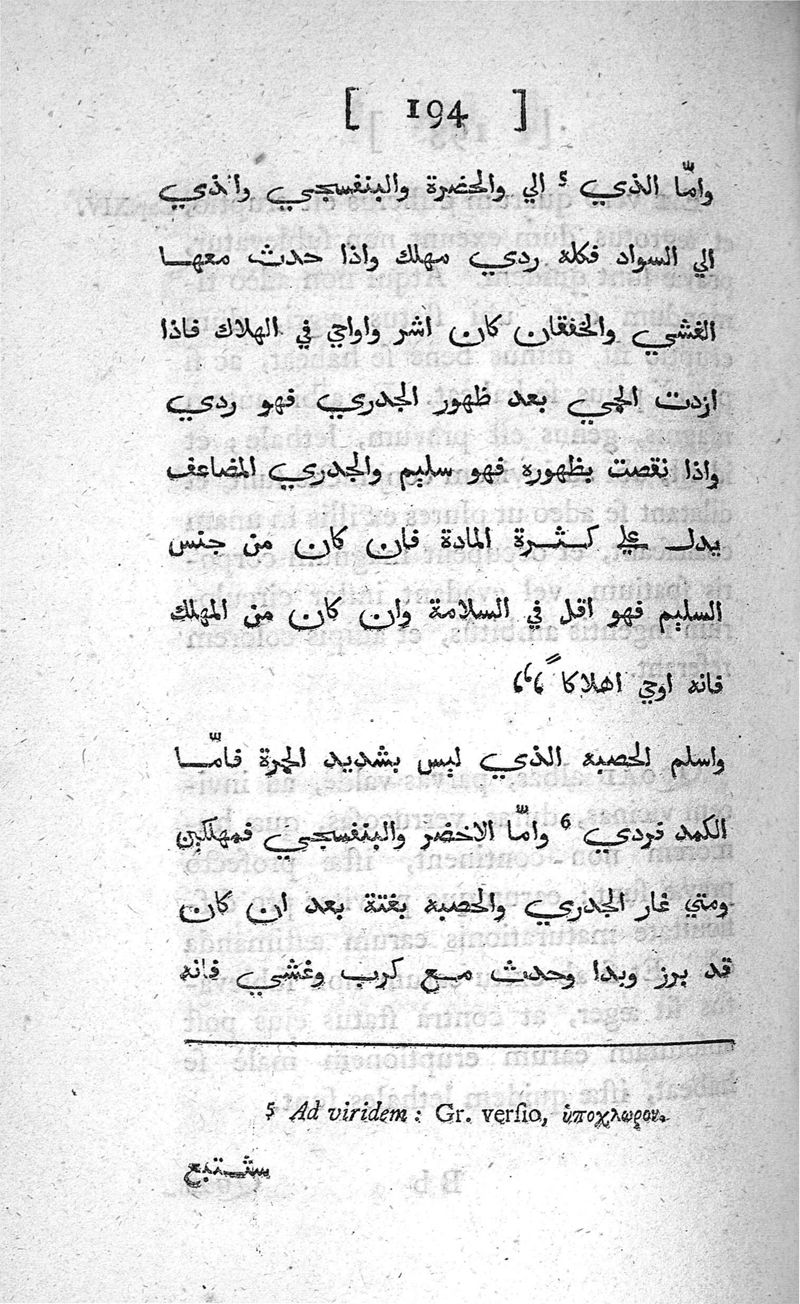 [ 194 ]
وامّا الذي 5 الي والخضرة والبنفسجي والذي
الي السواد فكله ردي مهلك واذا حدث معهـا
الغشي والخفقان كان اشر واواجي في الهلاك فاذا
ازدت الحمي بعد ظهور الجدري فهو ردي
واذا نقصت بظهوره فهو سليم والجدري المضاعف
يدل علي كـثـرة المادة فان كان من جنس
السليم فهو اقل في السلامة وان كان من المهلك
فانه اوحي اهلاكا ً
واسلم الحصبه الذي ليس بشديد الحمرة فامّـا
الكمد فردي 6 وامّا الاخضر والبنفسجي فمهلكين
ومتي غار الجدري والحصبه بغتة بعد ان كان
قد برز وبدا وحدث مـع كرب وغشي فانه
5 Ad viridem: Gr. verſio, ὑποχλωρον.